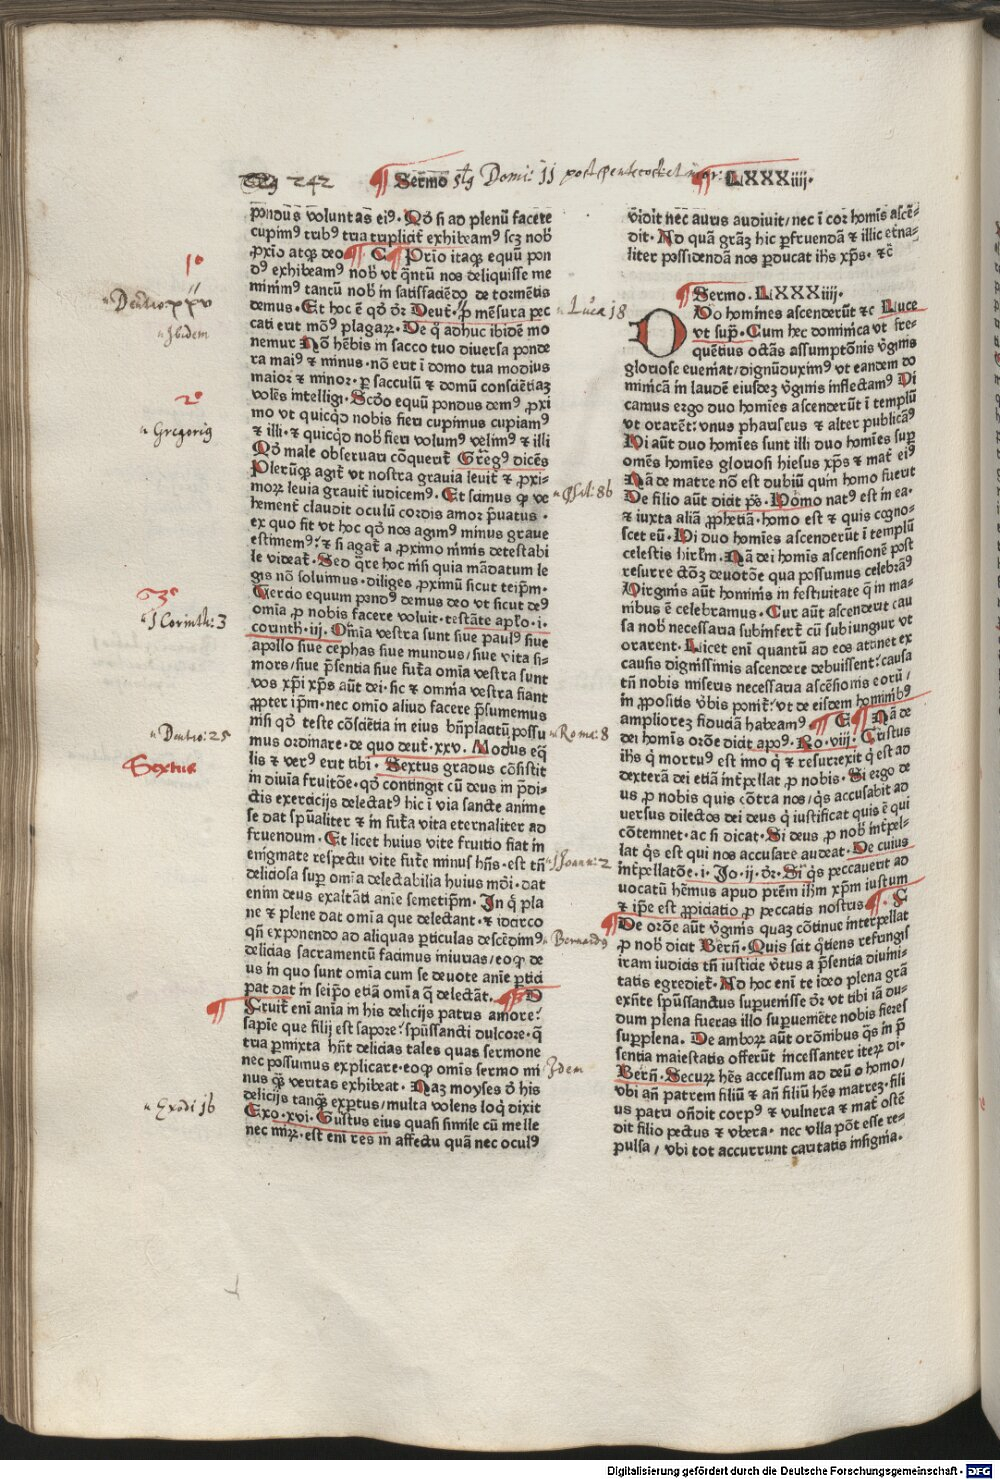 242 Sermo Domi: 11 post pentecost LXXXiiij.
pondus voluntas ei⁹. Qđ si ad plenū facere
cupim⁹ trib⁹ tria tripliciť exhibeam⁹ scz nob̄
ꝓxīo atqꝫ deo ¶ C ¶ Prīo itaqꝫ equū pon
d⁹ exhibeam⁹ nob̄ vt q̄ntū nos deliquisse me
minim⁹ tantū nob̄ in satisfaciēdo de tormētis
demus. Et hoc ē qđ dr̄ Deut. ꝓ mēsura pec
cati erit mōs plagaꝝ. De q̄ adhuc ibidē mo
nemur Nō hēbis in sacco tuo diuersa ponde
ra mai⁹ ⁊ minus. nō erit ī domo tua modius
maior ⁊ minor. ꝑ sacculū ⁊ domū consciētiaꝫ
volēs intelligi. Scđo equū pondus dem⁹ ꝓxi
mo vt quicqđ nobis fieri cupimus cupiam⁹
⁊ illi. ⁊ quicqđ nob̄ fieri volum⁹ velim⁹ ⁊ illi
Qđ male obseruari cōquerit̄ Greg⁹ dicēs
Plerūqꝫ agit̄ vt nostra grauia leuit̄ ⁊ ꝓxi-
moꝝ leuia grauit̄ iudicem⁹. Et scimus ꝙ ve
hement̄ claudit oculū cordis amor p̄uatus.
ex quo fit vt hoc qđ nos agim⁹ minus graue
estimem⁹: ⁊ si agat̄ a ꝓximo nimis detestabi
le videat̄. Sed q̄re hoc nisi quia mādatum le
gis nō soluimus. diliges ꝓximū sicut teip̄m.
Tercio equum pond⁹ demus deo vt sicut de⁹
omīa ꝓ nobis facere voluit. testāte aplo. i.
corinth. iij. Omīa vestra sunt siue paul⁹ siue
apollo siue cephas siue mundus/siue vita si-
mors/siue p̄sentia siue futa omīa vestra sunt
vos xp̄i xp̄s aūt dei. sic ⁊ omnia vestra fiant
ꝓpter ip̄m. nec omīo aliud facere p̄sumemus
nisi qđ teste cōsciētia in eius bn̄placitū possu
mus ordinare. de quo deut. xxv. Modus eq̄
lis ⁊ ver⁹ erit tibi. Sextus gradus cōsistit
in diuīa fruitōe. qđ contingit cū deus in p̄di-
ctis exercicijs delectat̄ hic ī via sancte anime
se dat sp̄ualiter ⁊ in futa vita eternaliter ad
fruendum. Et licet huius vite fruitio fiat in
enigmate respectu vite futē minus hn̄s. est tn̄
deliciosa suꝑ omīa delectabilia huius mōi. dat
enim deus exaltāti anīe semetip̄m. In q̄ pla
ne ⁊ plene dat omīa que delectant. ⁊ idcirco
qn̄ exponendo ad aliquas ꝑticulas descēdim⁹
delicias sacramentū facimus iniurias/eo ꝙ de
us in quo sunt omīa cum se deuote anīe ꝑtici
pat dat in seip̄o etiā omīa q̄ delectāt. ¶ D
Fruit̄ enī anīa in his delicijs patris amore:
sapīe que filij est sapore: sp̄ussancti dulcore. q̄
tria ꝑmixta hn̄t delicias tales quas sermone
nec possumus explicare. eo ꝙ omīs sermo mi
nus q̄ꝫ veritas exhibeat. Naꝫ moyses d̄ his
delicijs tanqꝫ exꝑtus/multa volens loq̄ dixit
Exo. xvi. Gustus eius quasi simile cū melle
nec miꝝ. est enī res in affectu quā nec ocul⁹
vidit nec auris audiuit/nec ī cor homīs ascē-
dit. Ad quā grāꝫ hic ꝑfruendā ⁊ illic etna-
liter possidendā nos ꝑducat ih̄s xp̄s. ⁊c̄
¶ Sermo. LXXXiiij.
DVo homines ascenderūt ⁊c Luce
vt sup̄. Cum hec dominica vt fre-
quētius octās assumptōnis v̓ginis
gloriose eueniat/dignū duxim⁹ vt eandem do
minicā in laudē eiusdeꝫ v̓ginis inflectam⁹ Di
camus ergo duo homīes ascenderūt ī templū
vt orarēt: vnus phariseus ⁊ alter publican⁹
Hi aūt duo homīes sunt illi duo homīes suꝑ
omēs homīes gloriosi hiesus xp̄s ⁊ mat̄ ei⁹
Nā de matre nō est dubiū quin homo fuerit
De filio aūt dicit p̄s. Homo nat⁹ est in ea.
⁊ iuxta aliā ꝓphetiā. homo est ⁊ quis cogno-
scet eū. Hi duo homīes ascenderūt ī templū
celestis hirlm̄. Nā dei homīs ascensionē post
resurrectōꝫ deuotōe qua possumus celebrā⁹
Virginis aūt hominis in festiuitate q̄ in ma-
nibus ē celebramus. Cur aūt ascenderit cau
sa nob̄ necessaria subinfert̄ cū subiungitur vt
orarent. Licet enī quantū ad eos atinet ex
causis dignissimis ascendere debuissent: causa
tn̄ nobis miseris necessaria ascēsionis eorū/
in ꝓpositis v̓bis ponit̄: vt de eisdem hominib⁹
ampliorez fiduciā habeam⁹ ¶ E ¶ Nā de
dei homīs orōe dicit apo⁹. Ro. viij. Cristus
ih̄s q̄ mortu⁹ est imo q̄ ⁊ resurrexit q̄ est ad
dexterā dei etiā int̄pellat ꝓ nobis. Si ergo de
us ꝓ nobis quis cōtra nos/q̄s accusabit ad
uersus dilectos dei deus q̄ iustificat quis ē qui
cōtemnet. ac si dicat. Si deus ꝓ nob̄ int̄pel-
lat q̄s est qui nos accusare audeat. De cuius
int̄pellatōe. i. Jo. ij. dr̄. Si q̄s peccauerit ad
uocatū hēmus apud prēm ih̄m xp̄m iustum
⁊ ip̄e est ꝓpiciatio ꝓ peccatis nostris ¶. F
¶ De orōe aūt v̓ginis quaꝫ cōtinue interpellat
ꝓ nob̄ dicit Bern̄. Quis scit q̄tiens refrīgis
iram iudicis tn̄ iusticie v̓tus a p̄sentia diuini-
tatis egrediet̄. Ad hoc enī te ideo plena grā
exn̄te sp̄ussanctus suꝑuenisse dr̄ vt tibi iā du-
dum plena fueras illo suꝑueniēte nobis fieres
suꝑplena. De amboꝝ aūt orōnibus q̄s in p̄
sentia maiestatis offerūt incessanter iteꝝ di.
Bern̄. Securꝝ hēs accessum ad deū o homo/
vbi an̄ patrem filiū ⁊ an̄ filiū hēs matreꝫ. fili
us patri on̄dit corp⁹ ⁊ vulnera ⁊ mat̄ ostē
dit filio pectus ⁊ vbera. nec vlla pōt esse re-
pulsa/ vbi tot accurrunt caritatis insignia.
1º
Deutro: xxv
Ibidem
2º
Gregori9
3º
1 Corinth: 3
Deutro: 25
Sextus
Exodi 16
Luca 18
Psal: 86
Roma: 8
1 Joann: 2
Bernard9
Idem
Digitalisierung gefördert durch die Deutsche Forschungsgemeinschaft - DFG